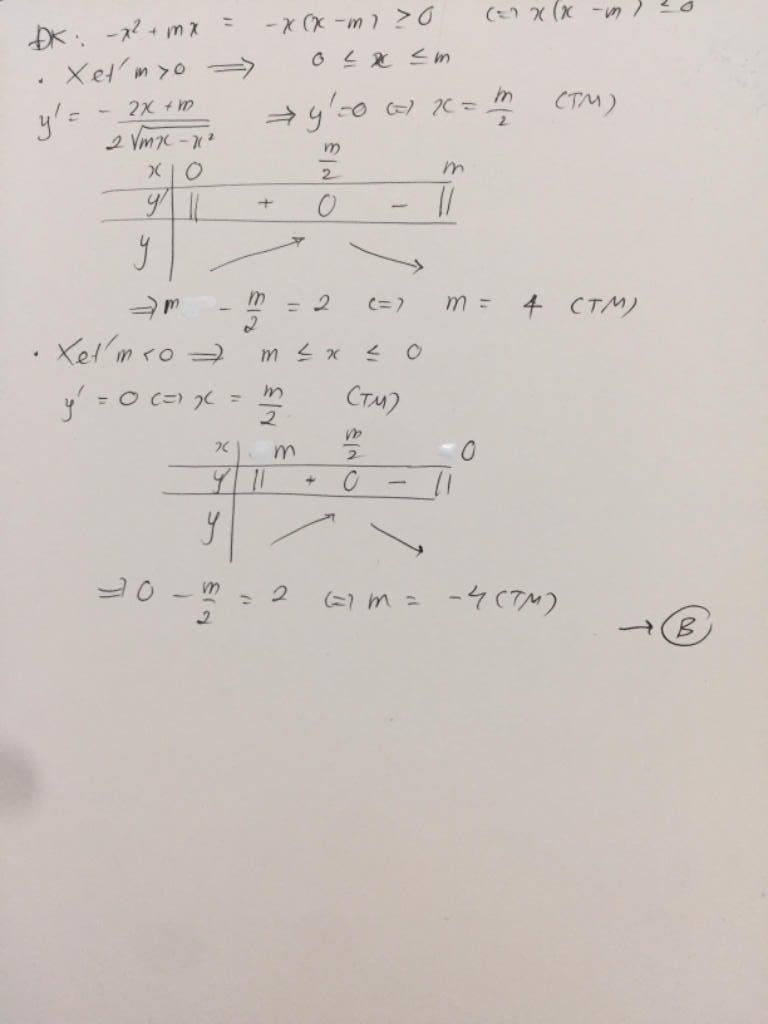 ĐK: -x² + mx = -x(x-m) ≥ 0 (=) x(x-m) ≤ 0
. Xét m>0 => 0 ≤ x ≤ m
y' = - 2x+m / 2√mx-x² => y'=0 (=) x = m/2 (TM)
x | 0 m/2 m
y' || + 0 - ||
y
=> m - m/2 = 2 (=) m = 4 (TM)
. Xét m<0 => m ≤ x ≤ 0
y' = 0 (=) x = m/2 (TM)
x | m m/2 0
y' || + 0 - ||
y
=> 0 - m/2 = 2 (=) m = -4 (TM)
→ B